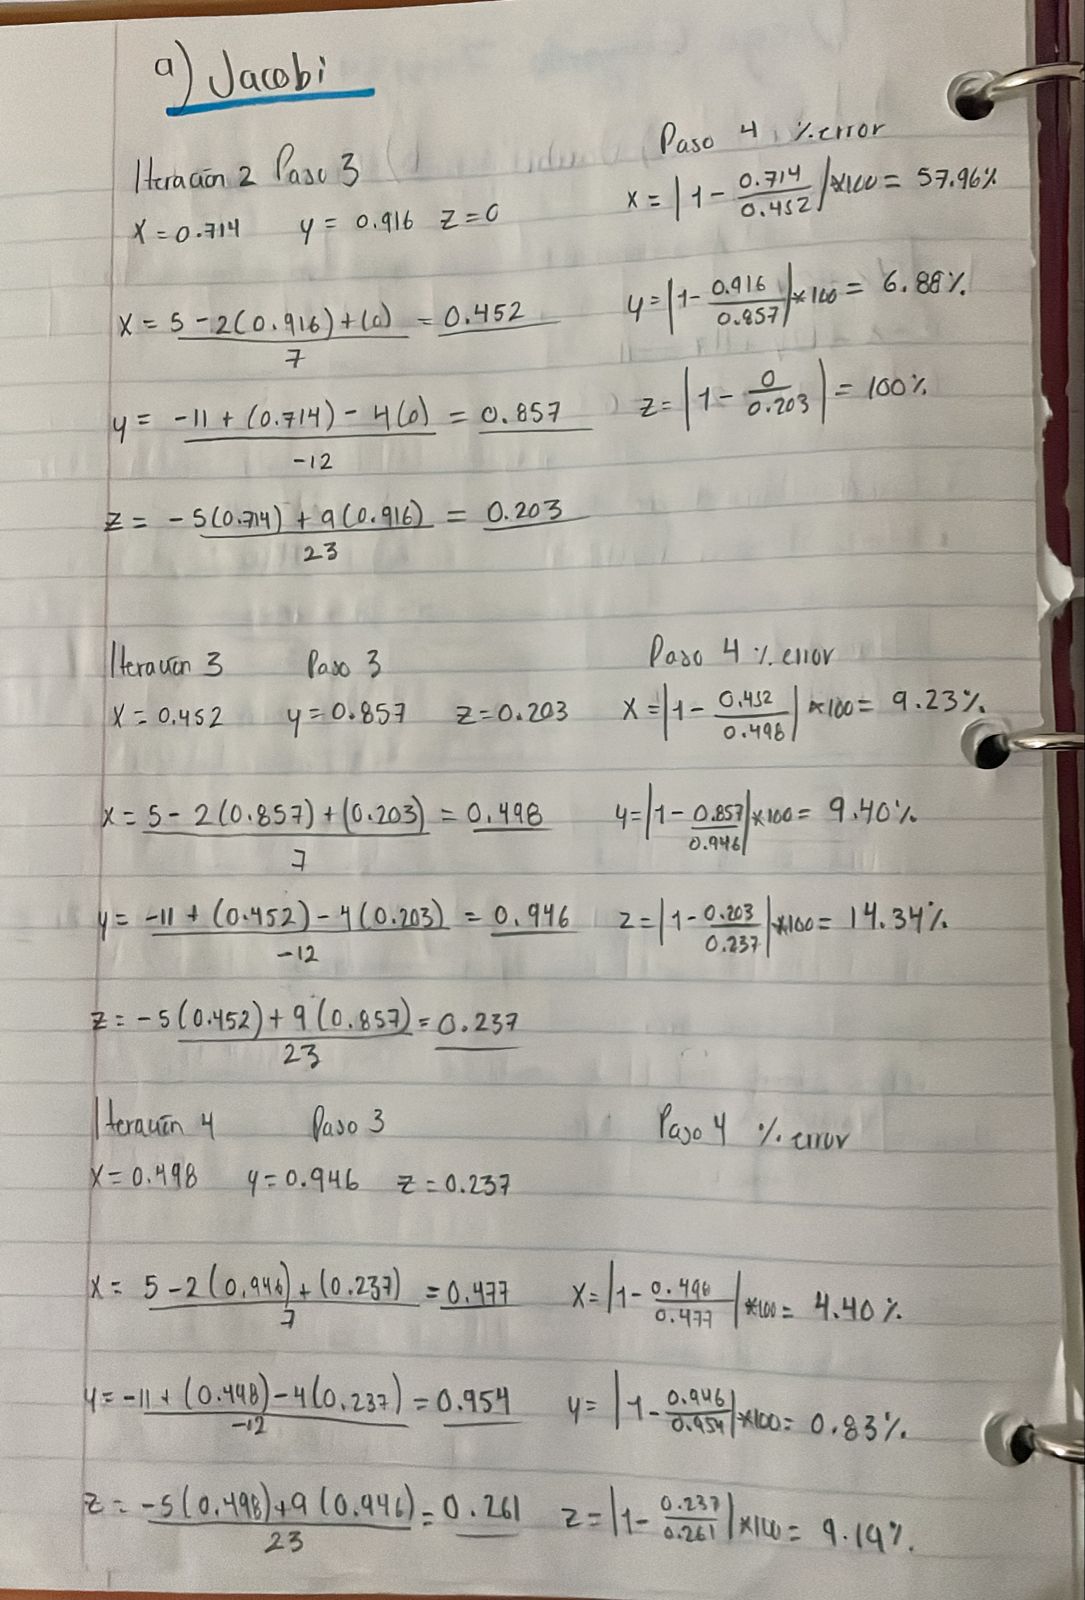 a) Jacobi
Iteración 2 Paso 3
x = 0.714 y = 0.916 z = 0
x = 5 - 2(0.916) + (0) = 0.452
7
y = -11 + (0.714) - 4(0) = 0.857
-12
z = -5(0.714) + 9(0.916) = 0.203
23
Paso 4 % error
x = |1 - 0.714/0.452| *100 = 57.96%
y = |1 - 0.916/0.857| *100 = 6.88%
z = |1 - 0/0.203| = 100%
Iteración 3 Paso 3
x = 0.452 y = 0.857 z = 0.203
x = 5 - 2(0.857) + (0.203) = 0.498
7
y = -11 + (0.452) - 4(0.203) = 0.946
-12
z = -5(0.452) + 9(0.857) = 0.237
23
Paso 4 % error
x = |1 - 0.452/0.498| *100 = 9.23%
y = |1 - 0.857/0.946| *100 = 9.40%
z = |1 - 0.203/0.237| *100 = 14.34%
Iteración 4 Paso 3
x = 0.498 y = 0.946 z = 0.237
x = 5 - 2(0.946) + (0.237) = 0.477
7
y = -11 + (0.498) - 4(0.237) = 0.954
-12
z = -5(0.498) + 9(0.946) = 0.261
23
Paso 4 % error
x = |1 - 0.498/0.477| *100 = 4.40%
y = |1 - 0.946/0.954| *100 = 0.83%
z = |1 - 0.237/0.261| *100 = 9.19%.